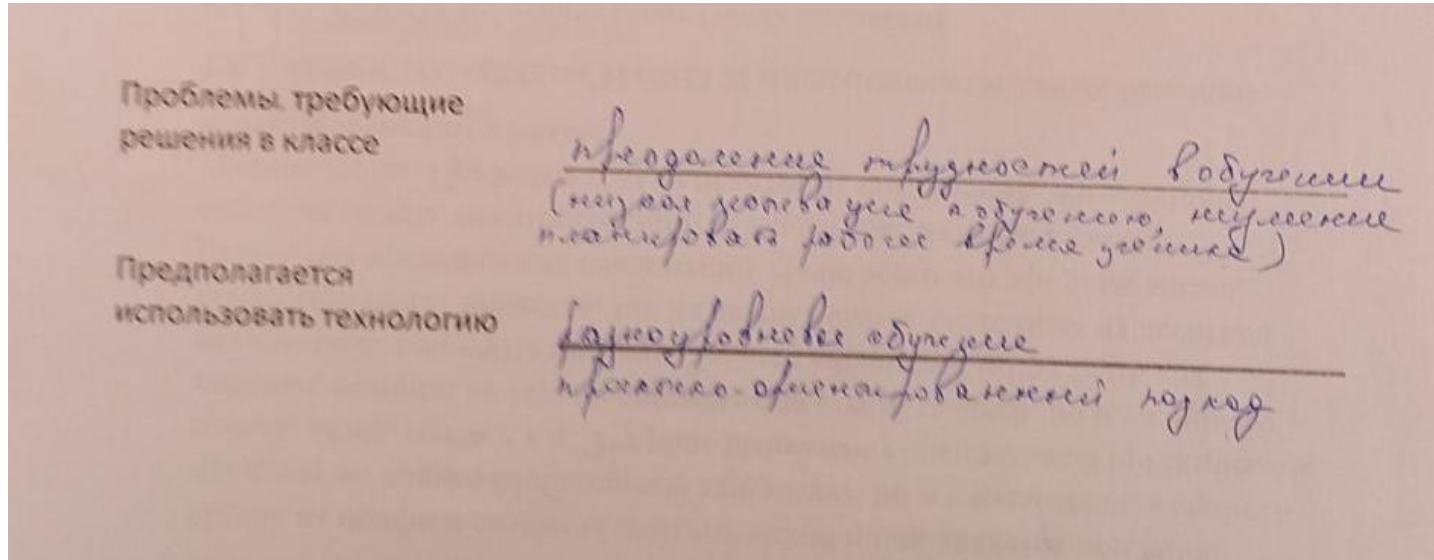 Проблемы, требующие
решения в классе
преодоление трудностей в обучении
(низкая мотивация к обучению, неумение
планировать рабочее время ученика)
Предполагается
использовать технологию
разноуровневое обучение
практико-ориентированный подход